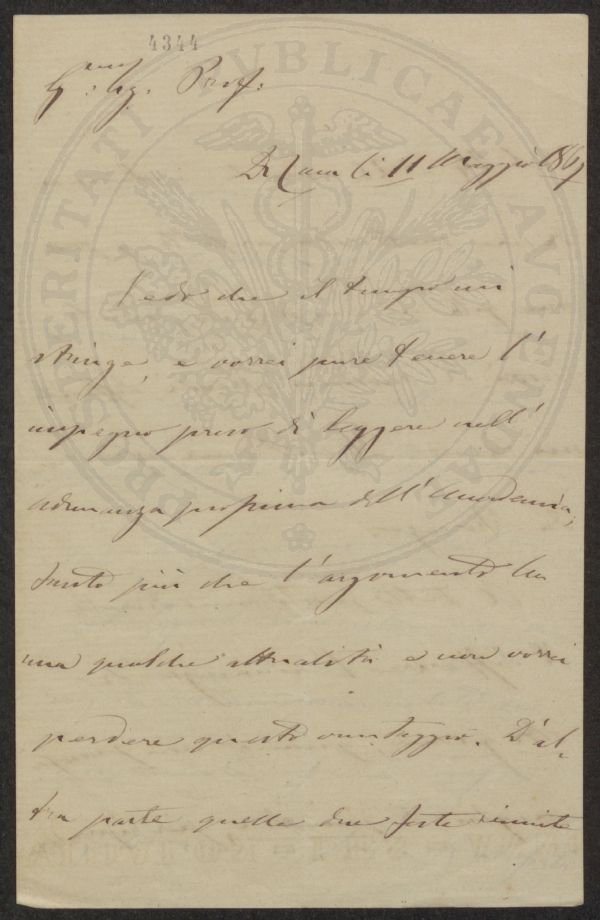 4344
Sig. Prof.
Di Casa li 11 Maggio 1867
Vedo che il tempo mi
stringe, e vorrei pure tenere l'
impegno preso di leggere nell'
adunanza prossima dell'Accademia,
tanto più che l'argomento ha
una qualche attualità e non vorrei
perdere questo vantaggio. D'al-
tra parte quelle due feste riunite
PROSPERITATI PVBLICAE AVGENDAE